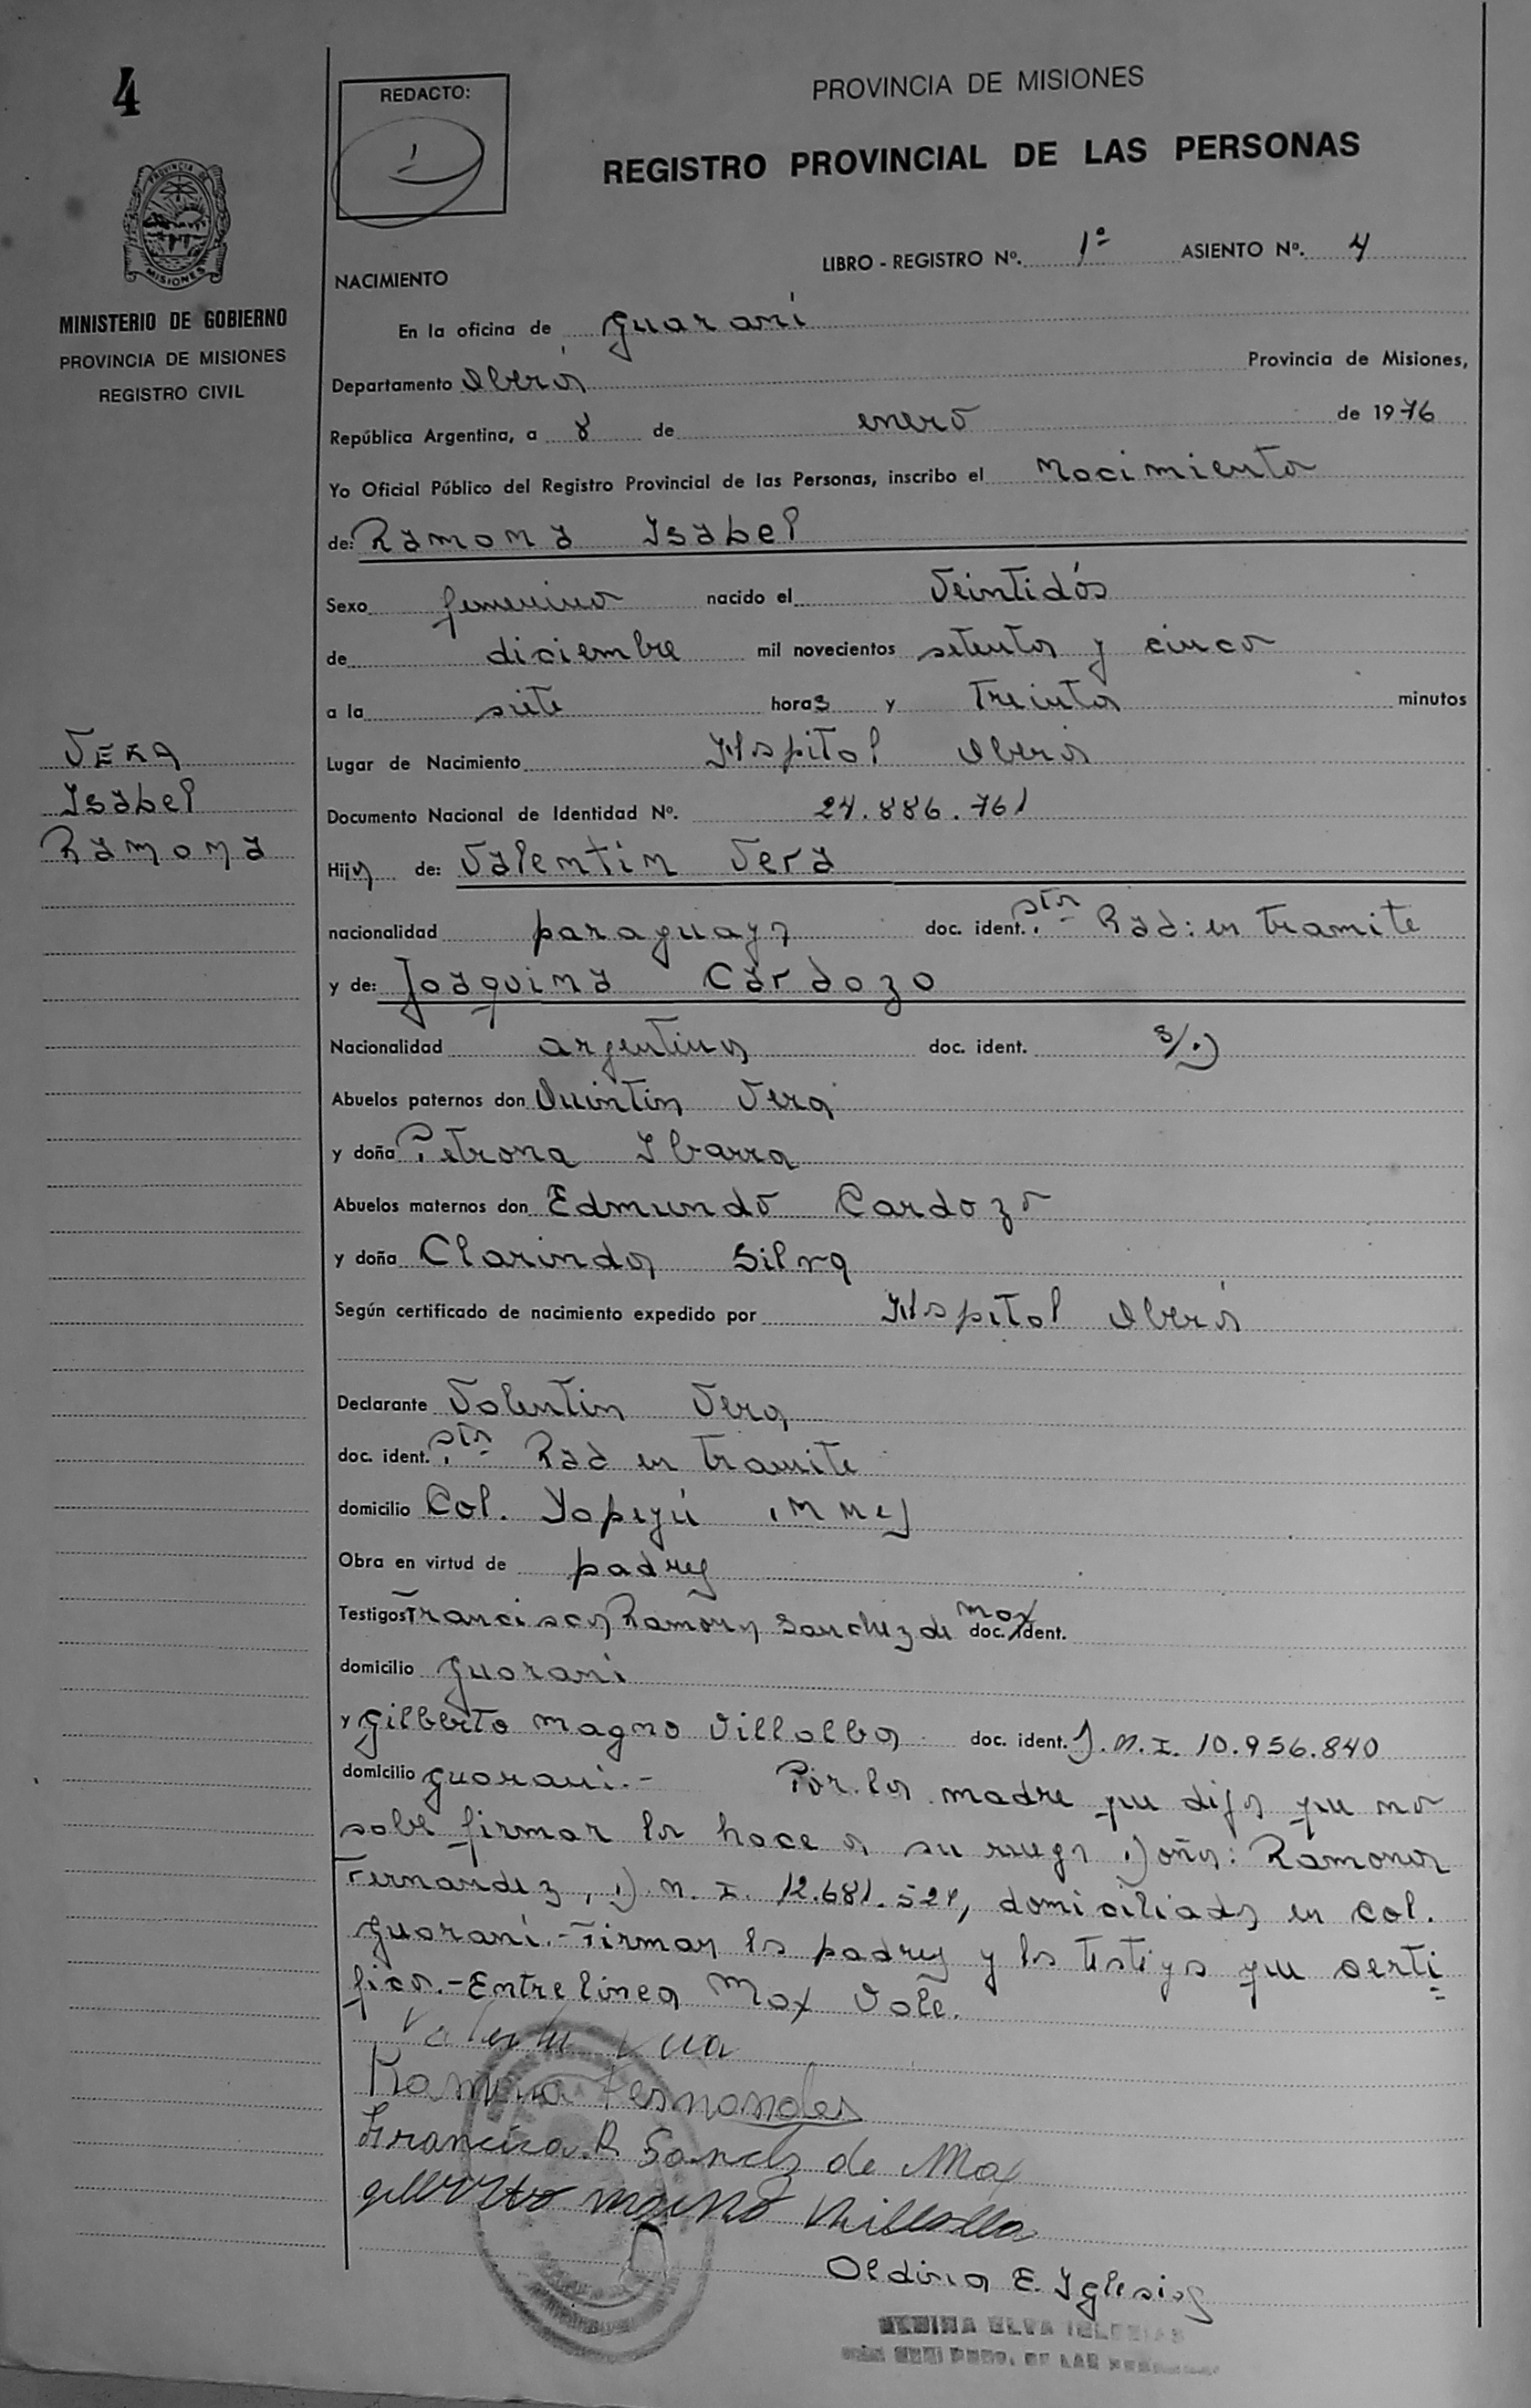 4
REDACTO:
PROVINCIA DE MISIONES
REGISTRO PROVINCIAL DE LAS PERSONAS
PROVINCIA DE
MISIONES
MINISTERIO DE GOBIERNO
PROVINCIA DE MISIONES
REGISTRO CIVIL
LIBRO - REGISTRO Nº. 1º ASIENTO Nº. 4
NACIMIENTO
En la oficina de Guaraní
Departamento Oberá Provincia de Misiones,
República Argentina, a 8 de enero de 1976
Yo Oficial Público del Registro Provincial de las Personas, inscribo el Nacimiento
de: Ramona Isabel
Sexo femenino nacido el Veintidós
de diciembre mil novecientos setenta y cinco
a la siete horas y treinta minutos
VERA
Isabel
Ramona
Lugar de Nacimiento Hospital Oberá
Documento Nacional de Identidad Nº. 24.886.761
Hija de: Valentin Vera
nacionalidad paraguaya doc. ident. Rad: en tramite
y de: Joaquina Cardozo
Nacionalidad argentina doc. ident.
Abuelos paternos don Quintin Vera
y doña Petrona Ibarra
Abuelos maternos don Edmundo Cardozo
y doña Clarinda Silva
Según certificado de nacimiento expedido por Hospital Oberá
Declarante Valentin Vera
doc. ident. Rad en tramite
domicilio Col. Yapeyú
Obra en virtud de padre
Testigos Francisca Ramona Sanchez de Max doc. ident.
domicilio Guaraní
y Gilberto Magno Villalba doc. ident. D.N.I. 10.956.840
domicilio Guaraní.- Por la madre que dijo que no
sabe firmar lo hace a su ruego Doña: Ramona
Fernandez, D.N.I. 12.681.524, domiciliada en Col.
Guaraní.- Firman los padres y los testigos que certi
fico.- Entrelinea Max Vale.
Valentin Vera
Ramona Fernandes
Francisca R. Sanchez de Max
Gilberto Magno Villalba
E. Iglesias
ELVA IGLESIAS
DE LAS